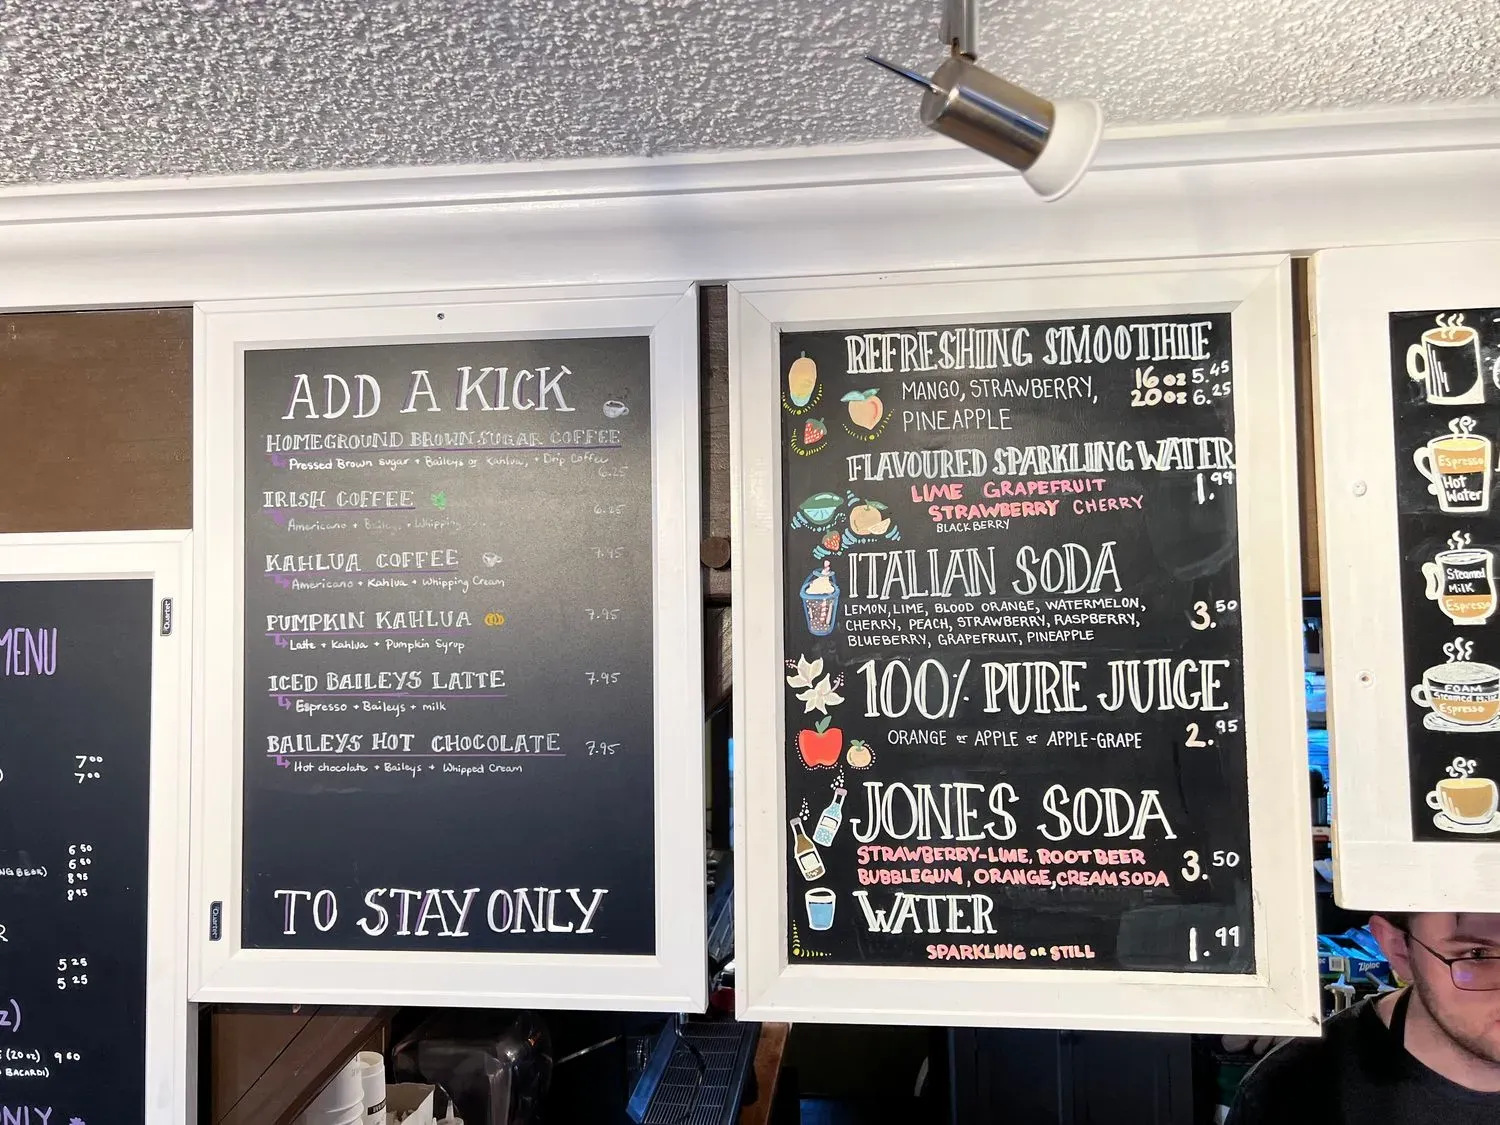 MENU
7.00
7.00
6 50
6 50
8 95
8 95
5 25
5 25
(20 oz) 9 60
BACARDI)
ONLY
Quartet
ADD A KICK
HOMEGROUND BROWN SUGAR COFFEE
Pressed Brown Sugar + Baileys or Kahlua, + Drip Coffee
6.25
IRISH COFFEE
6.25
Americano + Baileys + Whipping
KAHLUA COFFEE
7.45
Americano + Kahlua + Whipping Cream
PUMPKIN KAHLUA
7.95
Latte + Kahlua + Pumpkin Syrup
ICED BAILEYS LATTE
7.95
Espresso + Baileys + milk
BAILEYS HOT CHOCOLATE
7.95
Hot chocolate + Baileys + Whipped Cream
TO STAY ONLY
Quartet
REFRESHING SMOOTHIE
MANGO, STRAWBERRY, 16 oz 5.45
PINEAPPLE 20 oz 6.25
FLAVOURED SPARKLING WATER
LIME GRAPEFRUIT 1.99
STRAWBERRY CHERRY
BLACKBERRY
ITALIAN SODA
LEMON, LIME, BLOOD ORANGE, WATERMELON,
CHERRY, PEACH, STRAWBERRY, RASPBERRY, 3.50
BLUEBERRY, GRAPEFRUIT, PINEAPPLE
100% PURE JUICE
ORANGE or APPLE or APPLE-GRAPE 2.95
JONES SODA
STRAWBERRY-LIME, ROOT BEER
BUBBLEGUM, ORANGE, CREAM SODA 3.50
WATER
SPARKLING OR STILL 1.99
Espresso
Hot
Water
Steamed
Milk
Espresso
FOAM
Steamed Milk
Espresso
Ziploc